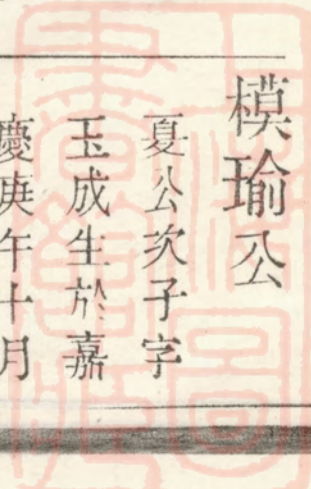 模瑜公
夏公次子字
玉成生於嘉
慶庚午十月